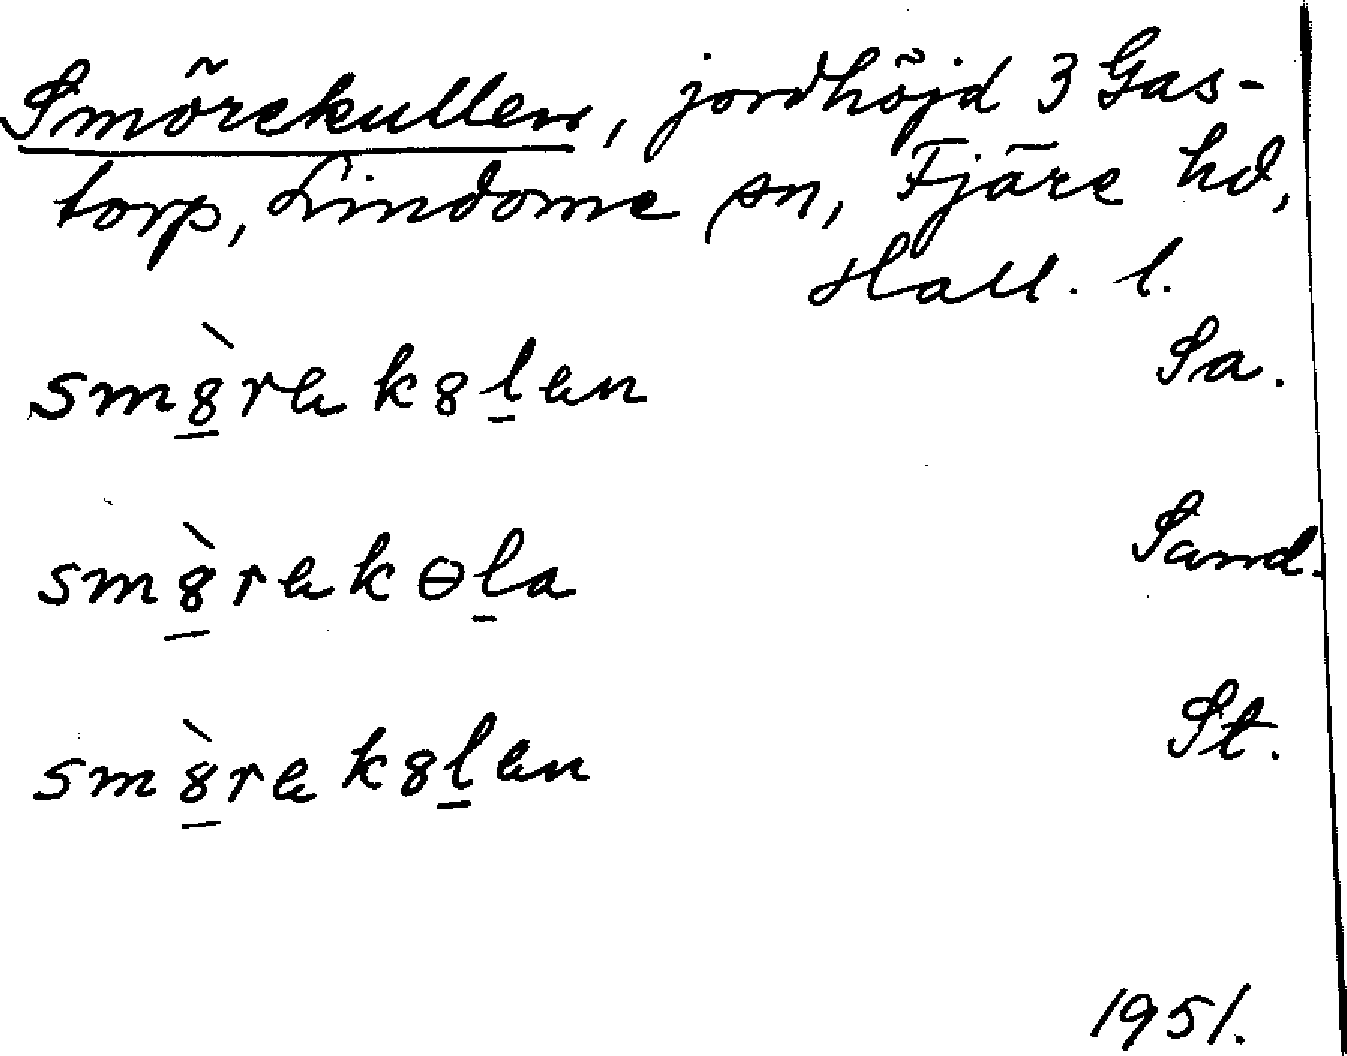 Smörekullen, jordhöjd 3 Gas-
torp, Lindome sn, Fjäre hd,
Hall. l.
sm8̱̀rek8ḻen Sa.
sm8̱̀rekɵḻa Sand.
sm8̱̀rek8ḻen St.
1951.